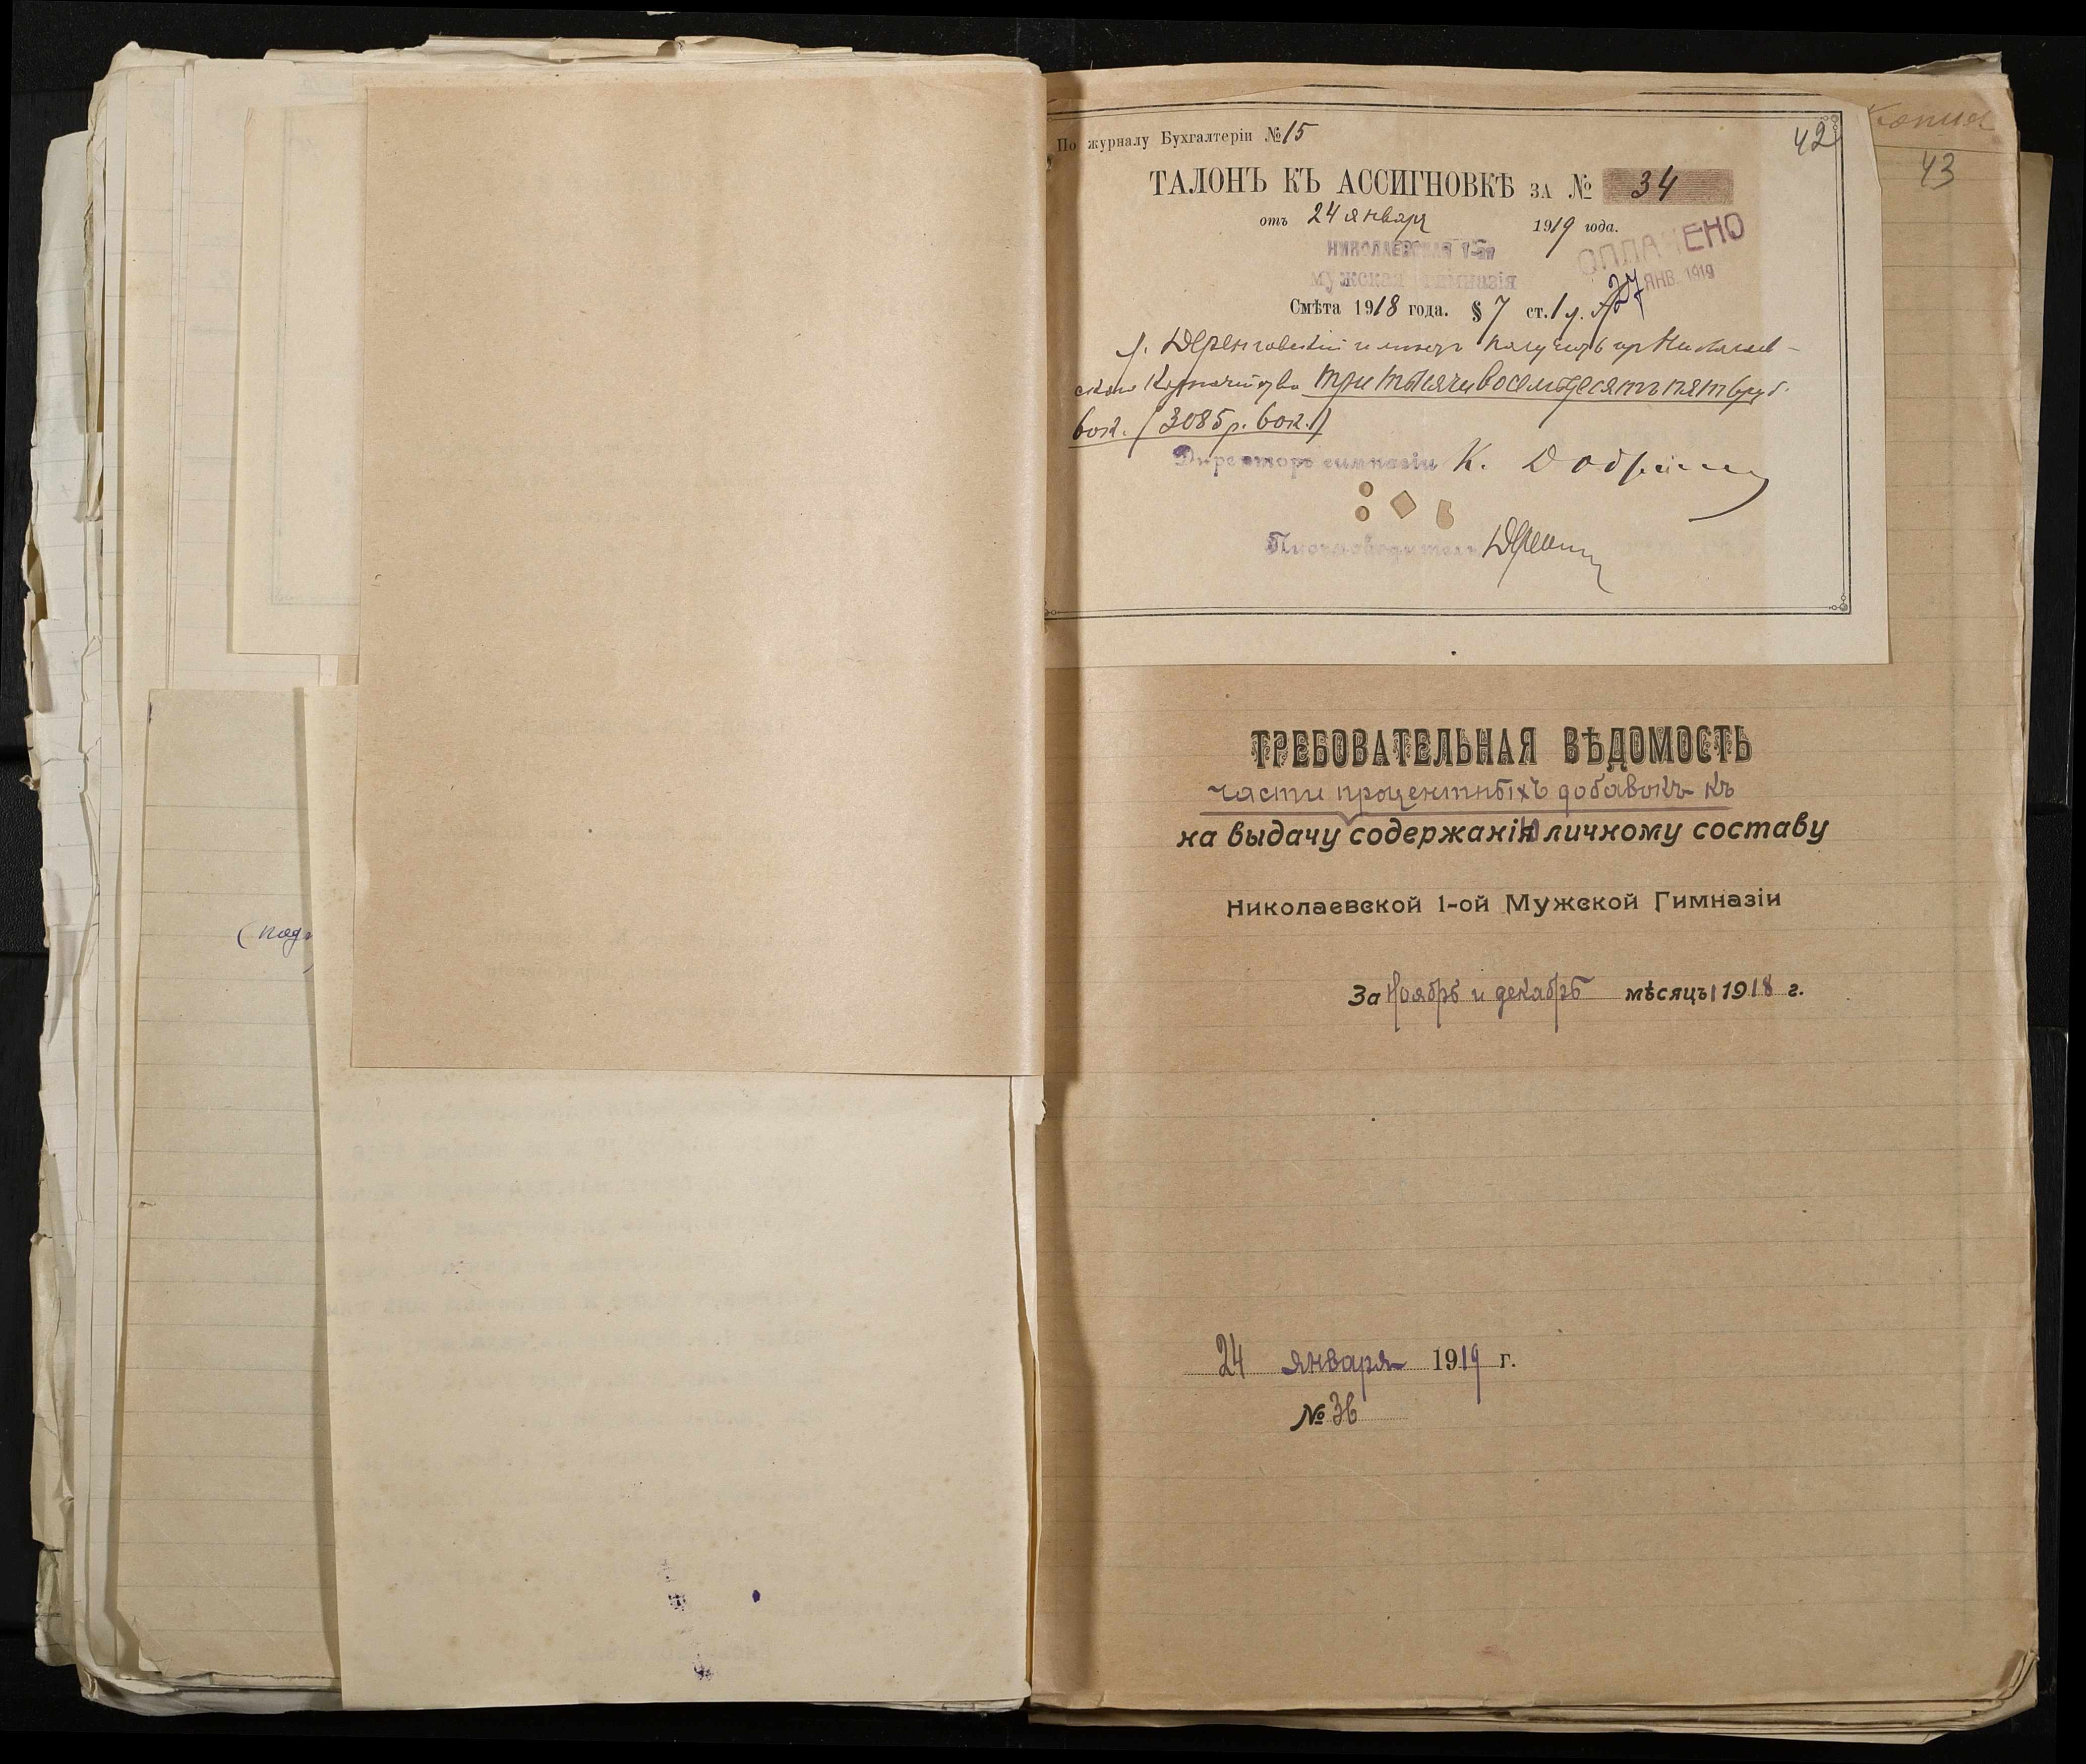 (под
Копия
42
43
По журналу Бухгалтеріи №15
ТАЛОНЪ КЪ АССИГНОВКѢ ЗА № 34
отъ 24 января 1919 года.
НИКОЛАЕВСКАЯ 1-ая
мужская гимназія
ОПЛАЧЕНО
27 ЯНВ. 1919
Смѣта 1918 года. § 7 ст. 1
г. имеет получить из Николаев-
скаго Казначейства три тысячи восемьдесятъ пять руб.
6 ок. (3085 р. 6 ок.)
Директоръ гимназіи К.
Письмоводитель
ТРЕБОВАТЕЛЬНАЯ ВѢДОМОСТЬ
части процентныхъ добавокъ къ
на выдачу содержанію личному составу
Николаевской 1-ой Мужской Гимназіи
За Ноябрь и декабрь мѣсяцы 1918 г.
24 января 1919 г.
№ 36